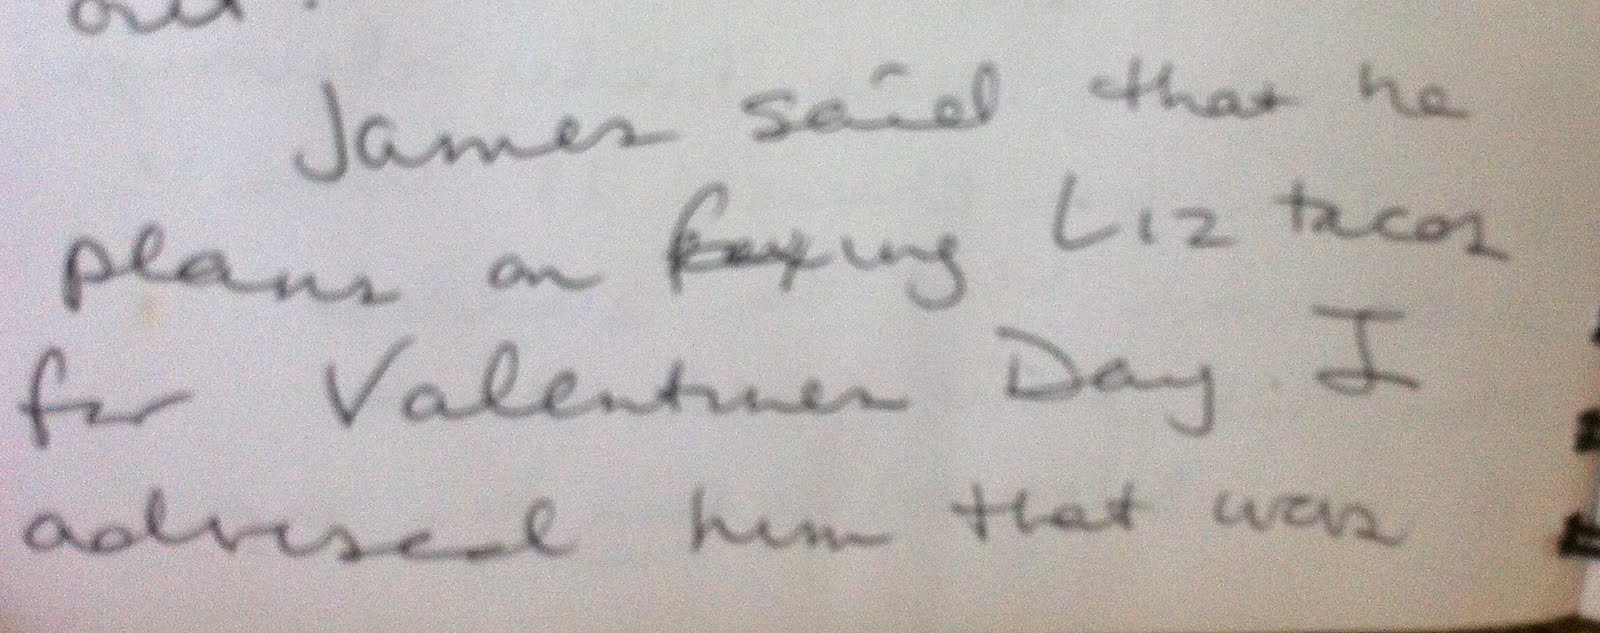 out.
James said that he
plans on buying Liz tacos
for Valentines Day. I
advised him that was